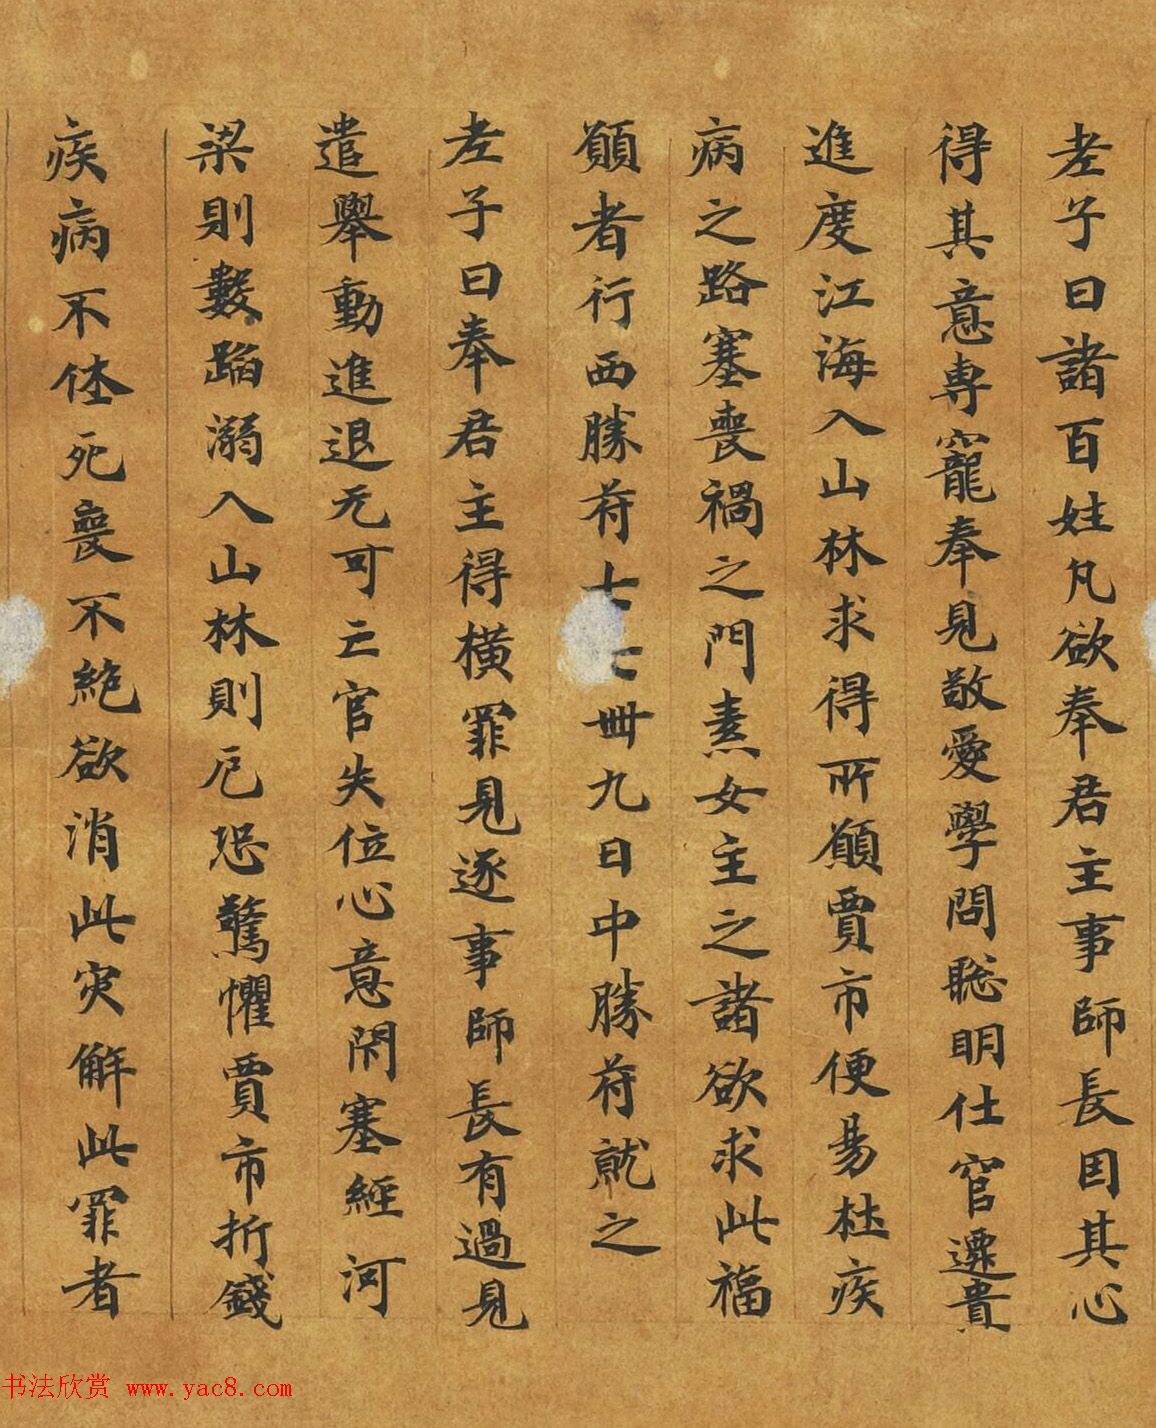 老子曰諸百姓凡欲奉君主事師長因其心
得其意專寵奉見敬愛學問聡明仕宦遷貴
進度江海入山林求得所願賈市便易杜疾
病之路塞喪禍之門素女主之諸欲求此福
願者行西勝符七七卌九日中勝符就之
老子曰奉君主得橫罪見逐事師長有過見
遣舉動進退无可亡官失位心意閇塞經河
梁則數蹈溺入山林則厄恐驚懼賈市折錢
疾病不休死喪不絶欲消此灾解此罪者
书法欣赏 www.yac8.com